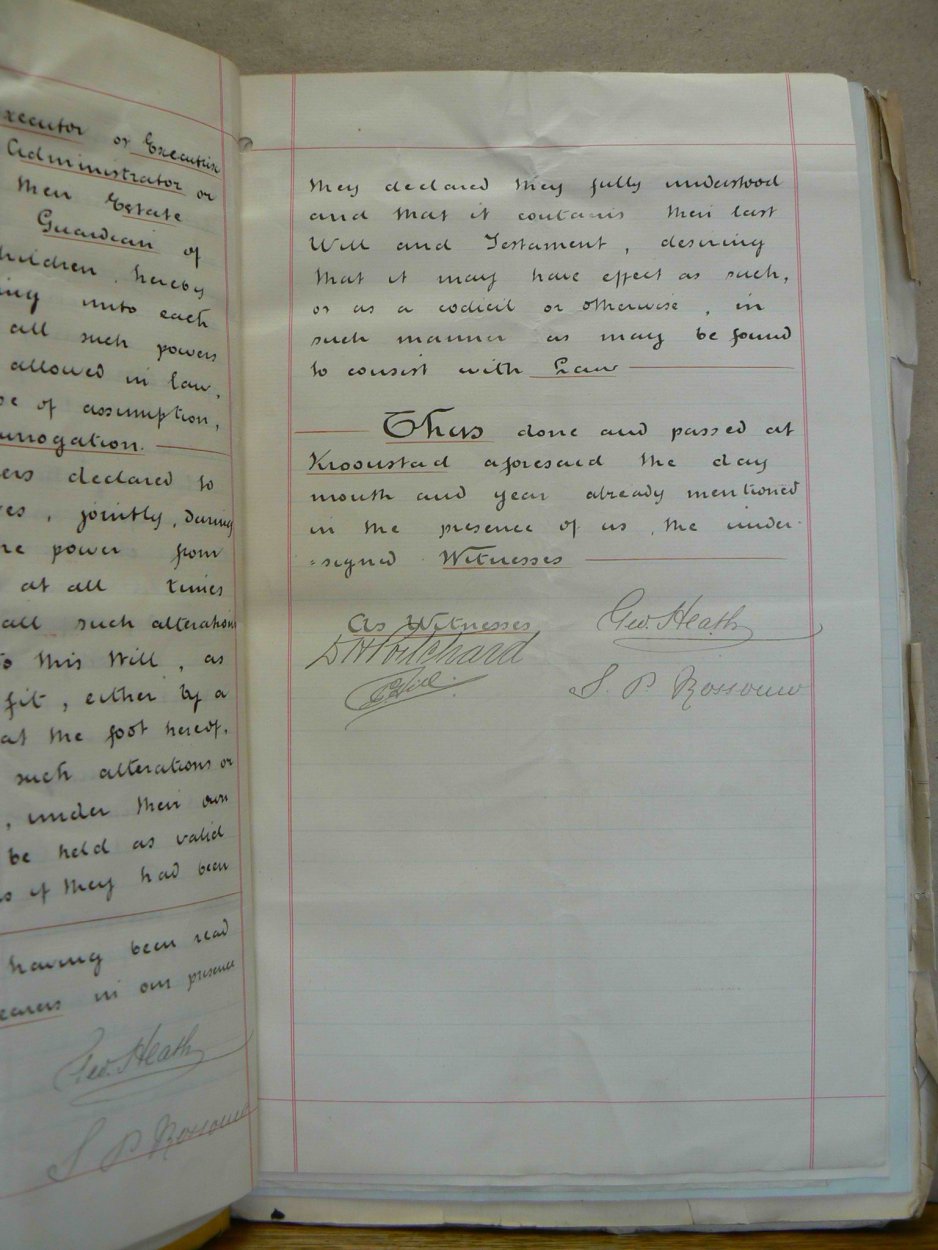 Executor or Executrix
Administrator or
their Estate
Guardian of
children, hereby
unto each
all such powers
allowed in law,
of assumption,
surrogation.
declared to
jointly, during
power from
at all times
all such alterations
to this Will, as
fit, either by a
at the foot hereof,
such alterations or
, under their own
be held as valid
as if they had been
having been read
in our presence
Geo. Heath
S P Rossouw
they declared they fully understood
and that it contains their last
Will and Testament, desiring
that it may have effect as such,
or as a codicil or otherwise, in
such manner as may be found
to consist with Law
Thus done and passed at
Kroonstad aforesaid the day
month and year already mentioned
in the presence of us, the under-
-signed Witnesses
As Witnesses
Geo. Heath
Pritchard
S. P. Rossouw